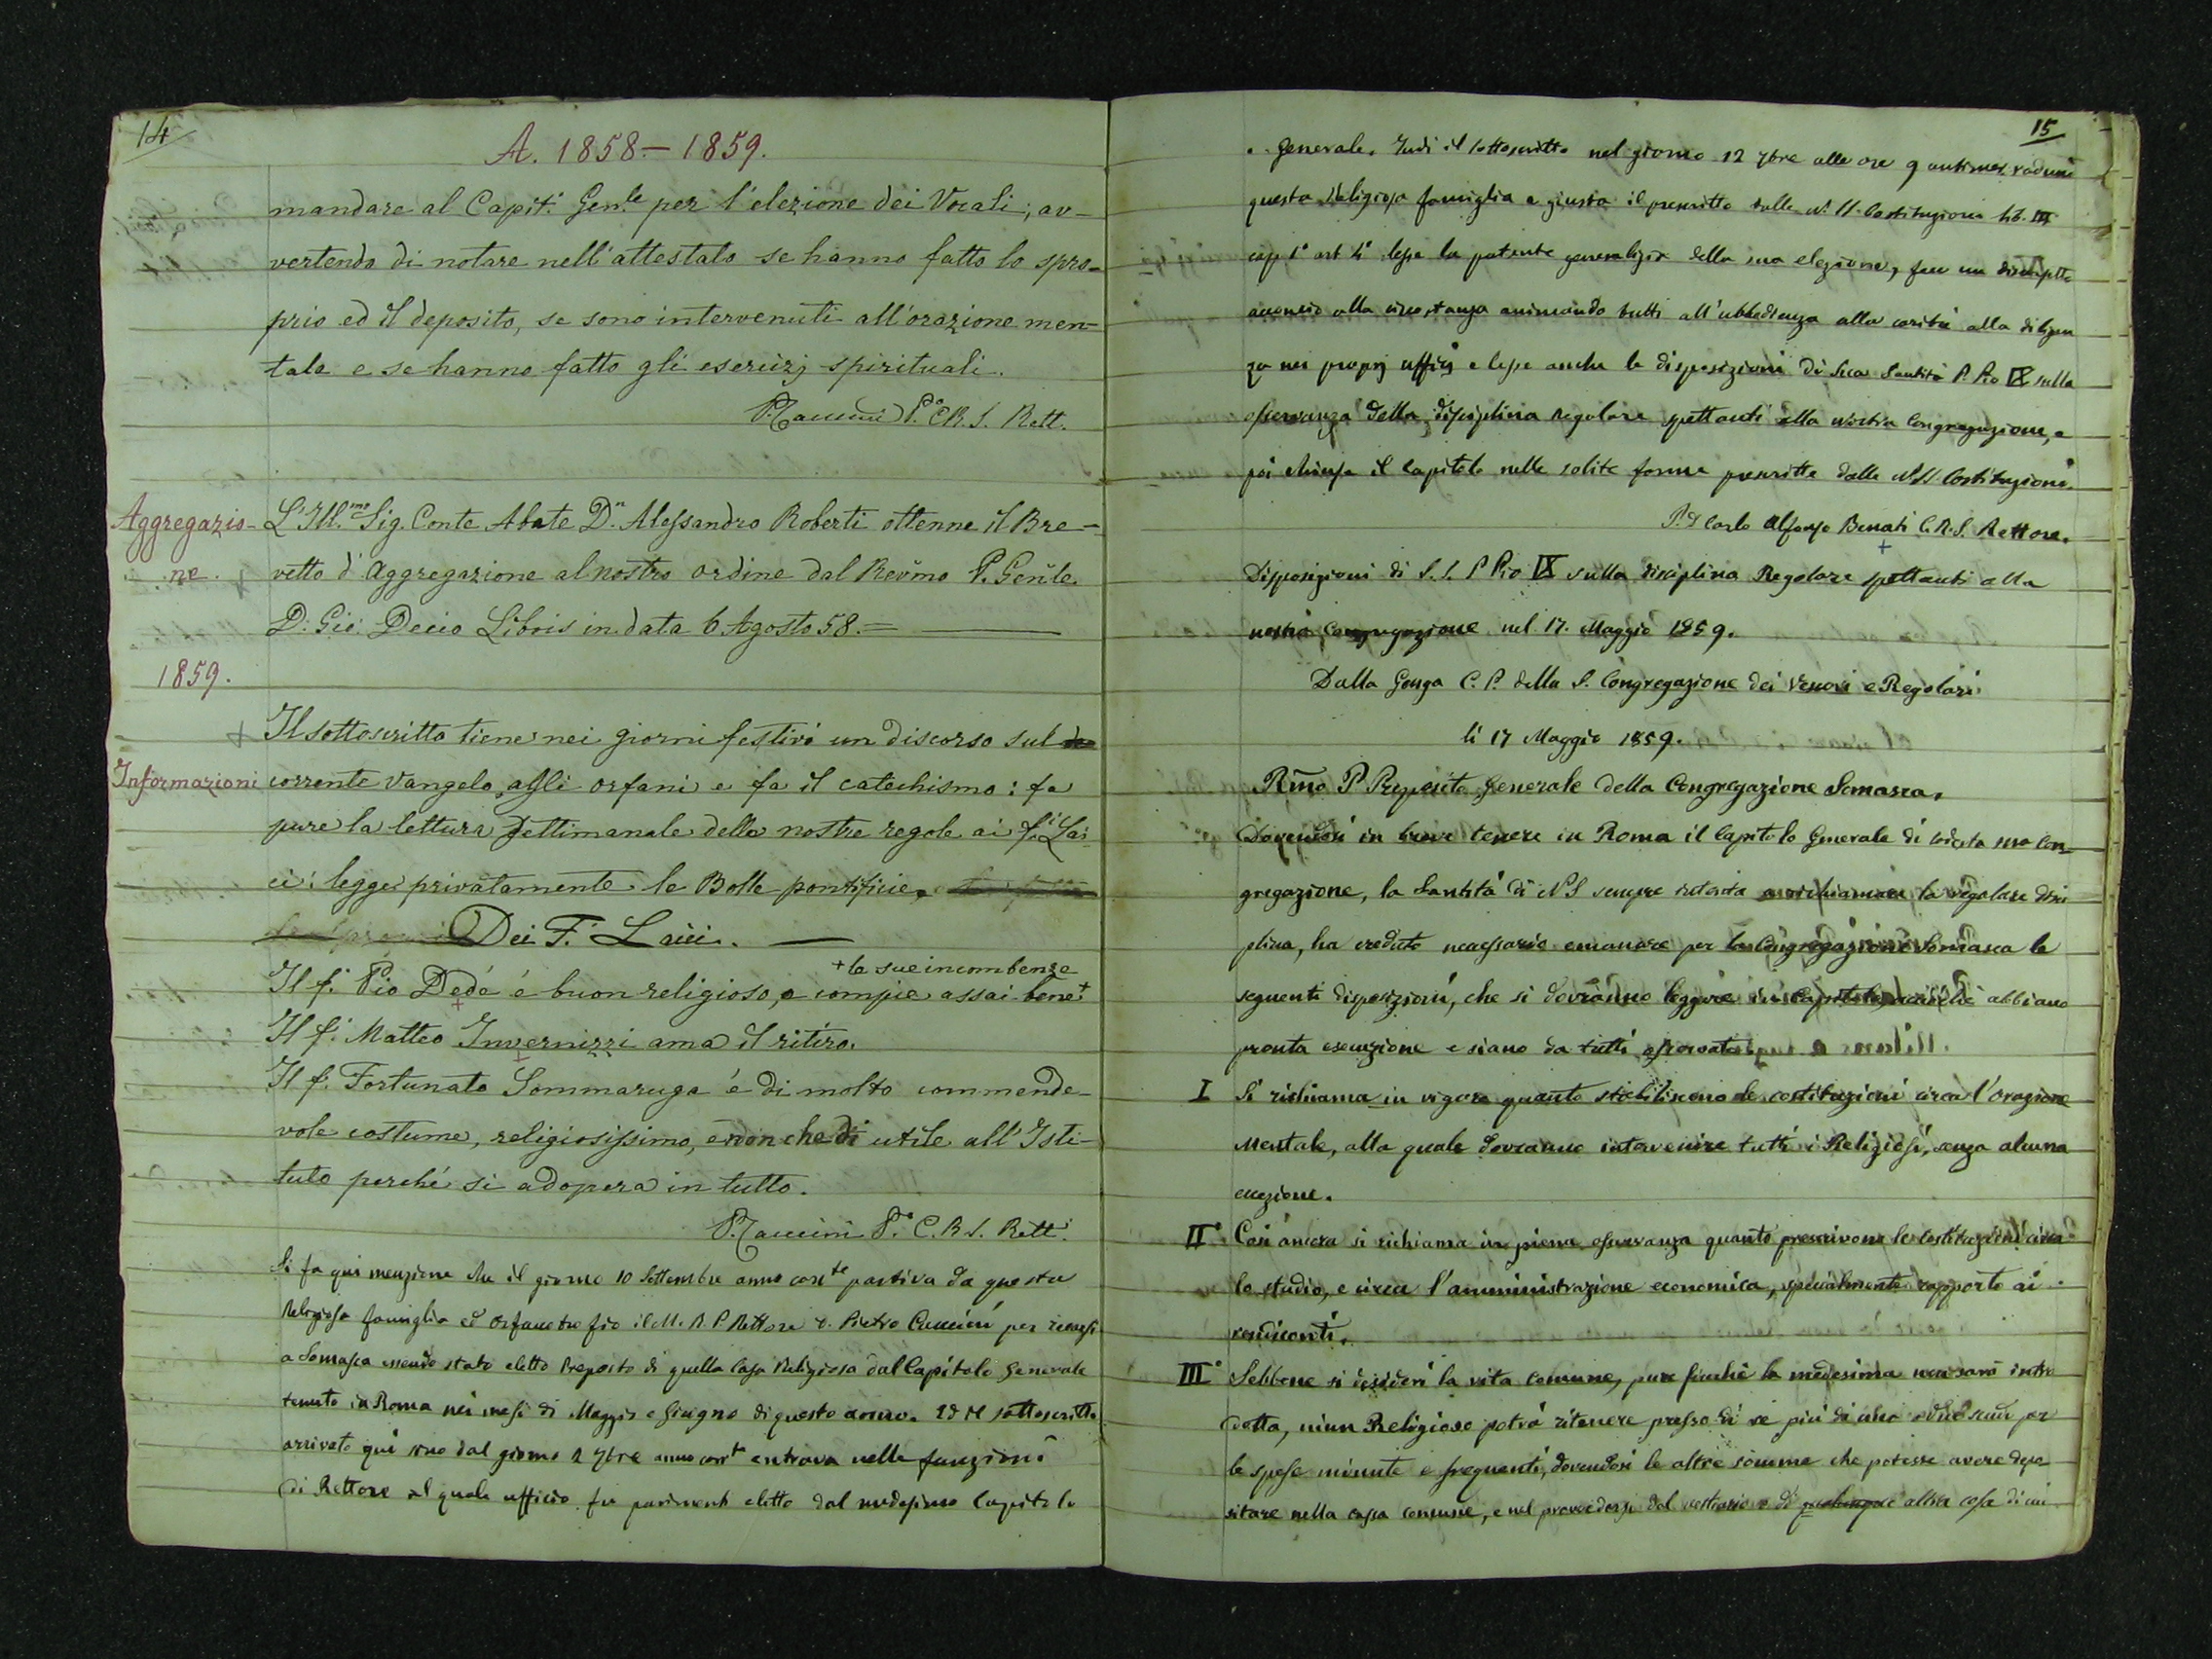 14
A. 1858.- 1859.
mandare al Capit. Gen.le per l'elezione dei Vocali; av-
vertendo di notare nell'attestato se hanno fatto lo spro-
prio ed il deposito, se sono intervenuti all'orazione men-
tale e se hanno fatto gli esercizj spirituali.
C.R.S. Rett.
Aggregazio-
ne.
L'Ill.mo Sig. Conte Abate D.n Alessandro Roberti ottenne il Bre-
vetto d'Aggregazione al nostro ordine dal Rev̄mo P. Geñle
D. Gio: Decio Libois in data 6 Agosto 58.=
1859.
+ Il sottoscritto tiene nei giorni festivi un discorso sul
Informazioni
corrente Vangelo agli orfani e fa il catechismo: fa
pure la lettura settimanale delle nostre regole ai f.i Lai-
ci: legge privatamente le Bolle pontificie.
Dei F. Laici. —
+ le sue incombenze
Il f. Pio Dedè è buon religioso, e compie assai bene +
Il f. Matteo Invernizzi ama il ritiro.
Il f. Fortunato Sommaruga è di molto commende-
vole costume, religiosissimo, e non che di utile all'Isti-
tuto perché si adopera in tutto.
C.R.S. Rett.
Si fa qui menzione che il giorno 10 Settembre anno corr.te partiva da questa
Religiosa famiglia ed Orfanotrofio il M. R. P. Rettore D. Pietro per recarsi
a Somasca essendo stato eletto Preposto di quella Casa Religiosa dal Capitolo Generale
tenuto in Roma nei mesi di Maggio e Giugno di questo anno. Ed il sottoscritto
arrivato qui sino dal giorno 2 7bre anno corr.te entrava nelle funzioni
di Rettore al quale ufficio fu parimenti eletto dal medesimo Capitolo
15
Generale. Indi il sottoscritto nel giorno 12 7bre alle ore 9 antimer. radunò
questa Religiosa famiglia e giusta il prescritto dalle N. SS. Costituzioni Lib. III
cap 1° art 4° lesse la patente generalizia della sua elezione, fece un discorsetto
alla circostanza animando tutti all'ubbedienza alla carità alla diligen
za nei proprj ufficj e lesse anche le disposizioni di Sua Santità P. Pio IX sulla
osservanza della disciplina regolare spettanti alla nostra Congregazione, e
poi chiuse il Capitolo nelle solite forme prescritte dalle N. SS. Costituzioni.
P. D Carlo Alfonso Benati C.R.S. Rettore.
Disposizioni di S. S. P Pio IX sulla disciplina Regolare spettanti alla
nostra Congregazione nel 17. Maggio 1859.
Dalla Genga C. P. della S. Congregazione dei Vescovi e Regolari
li 17 Maggio 1859.
Rm̄o P Preposito Generale della Congregazione Somasca.
Dovendosi in breve tenere in Roma il Capitolo Generale di codesta sua Con-
gregazione, la Santità di N S sempre intenta a richiamare la regolare disci
plina, ha creduto necessario emanare per la Congregazione Somasca le
seguenti disposizioni, che si dovranno leggere in Capitolo, acciocchè abbiano
pronta esecuzione e siano da tutti osservate.
I Si richiama in vigore quanto stabiliscono le costituzioni circa l'Orazione
Mentale, alla quale dovranno intervenire tutti i Religiosi, senza alcuna
eccezione.
II° Così ancora si richiama in piena osservanza quanto prescrivono le Costituzioni circa
lo studio, e circa l'amministrazione economica, specialmente rapporto ai
rendiconti.
III° Sebbene si desideri la vita comune, pure finchè la medesima non sarà intro
dotta, niun Religioso potrà ritenere presso di se più di uno o due scudi per
le spese minute e frequenti, dovendosi le altre somme che potesse avere depo
sitare nella cassa comune, e nel provvedersi del vestiario o di qualunque altra cosa di cui